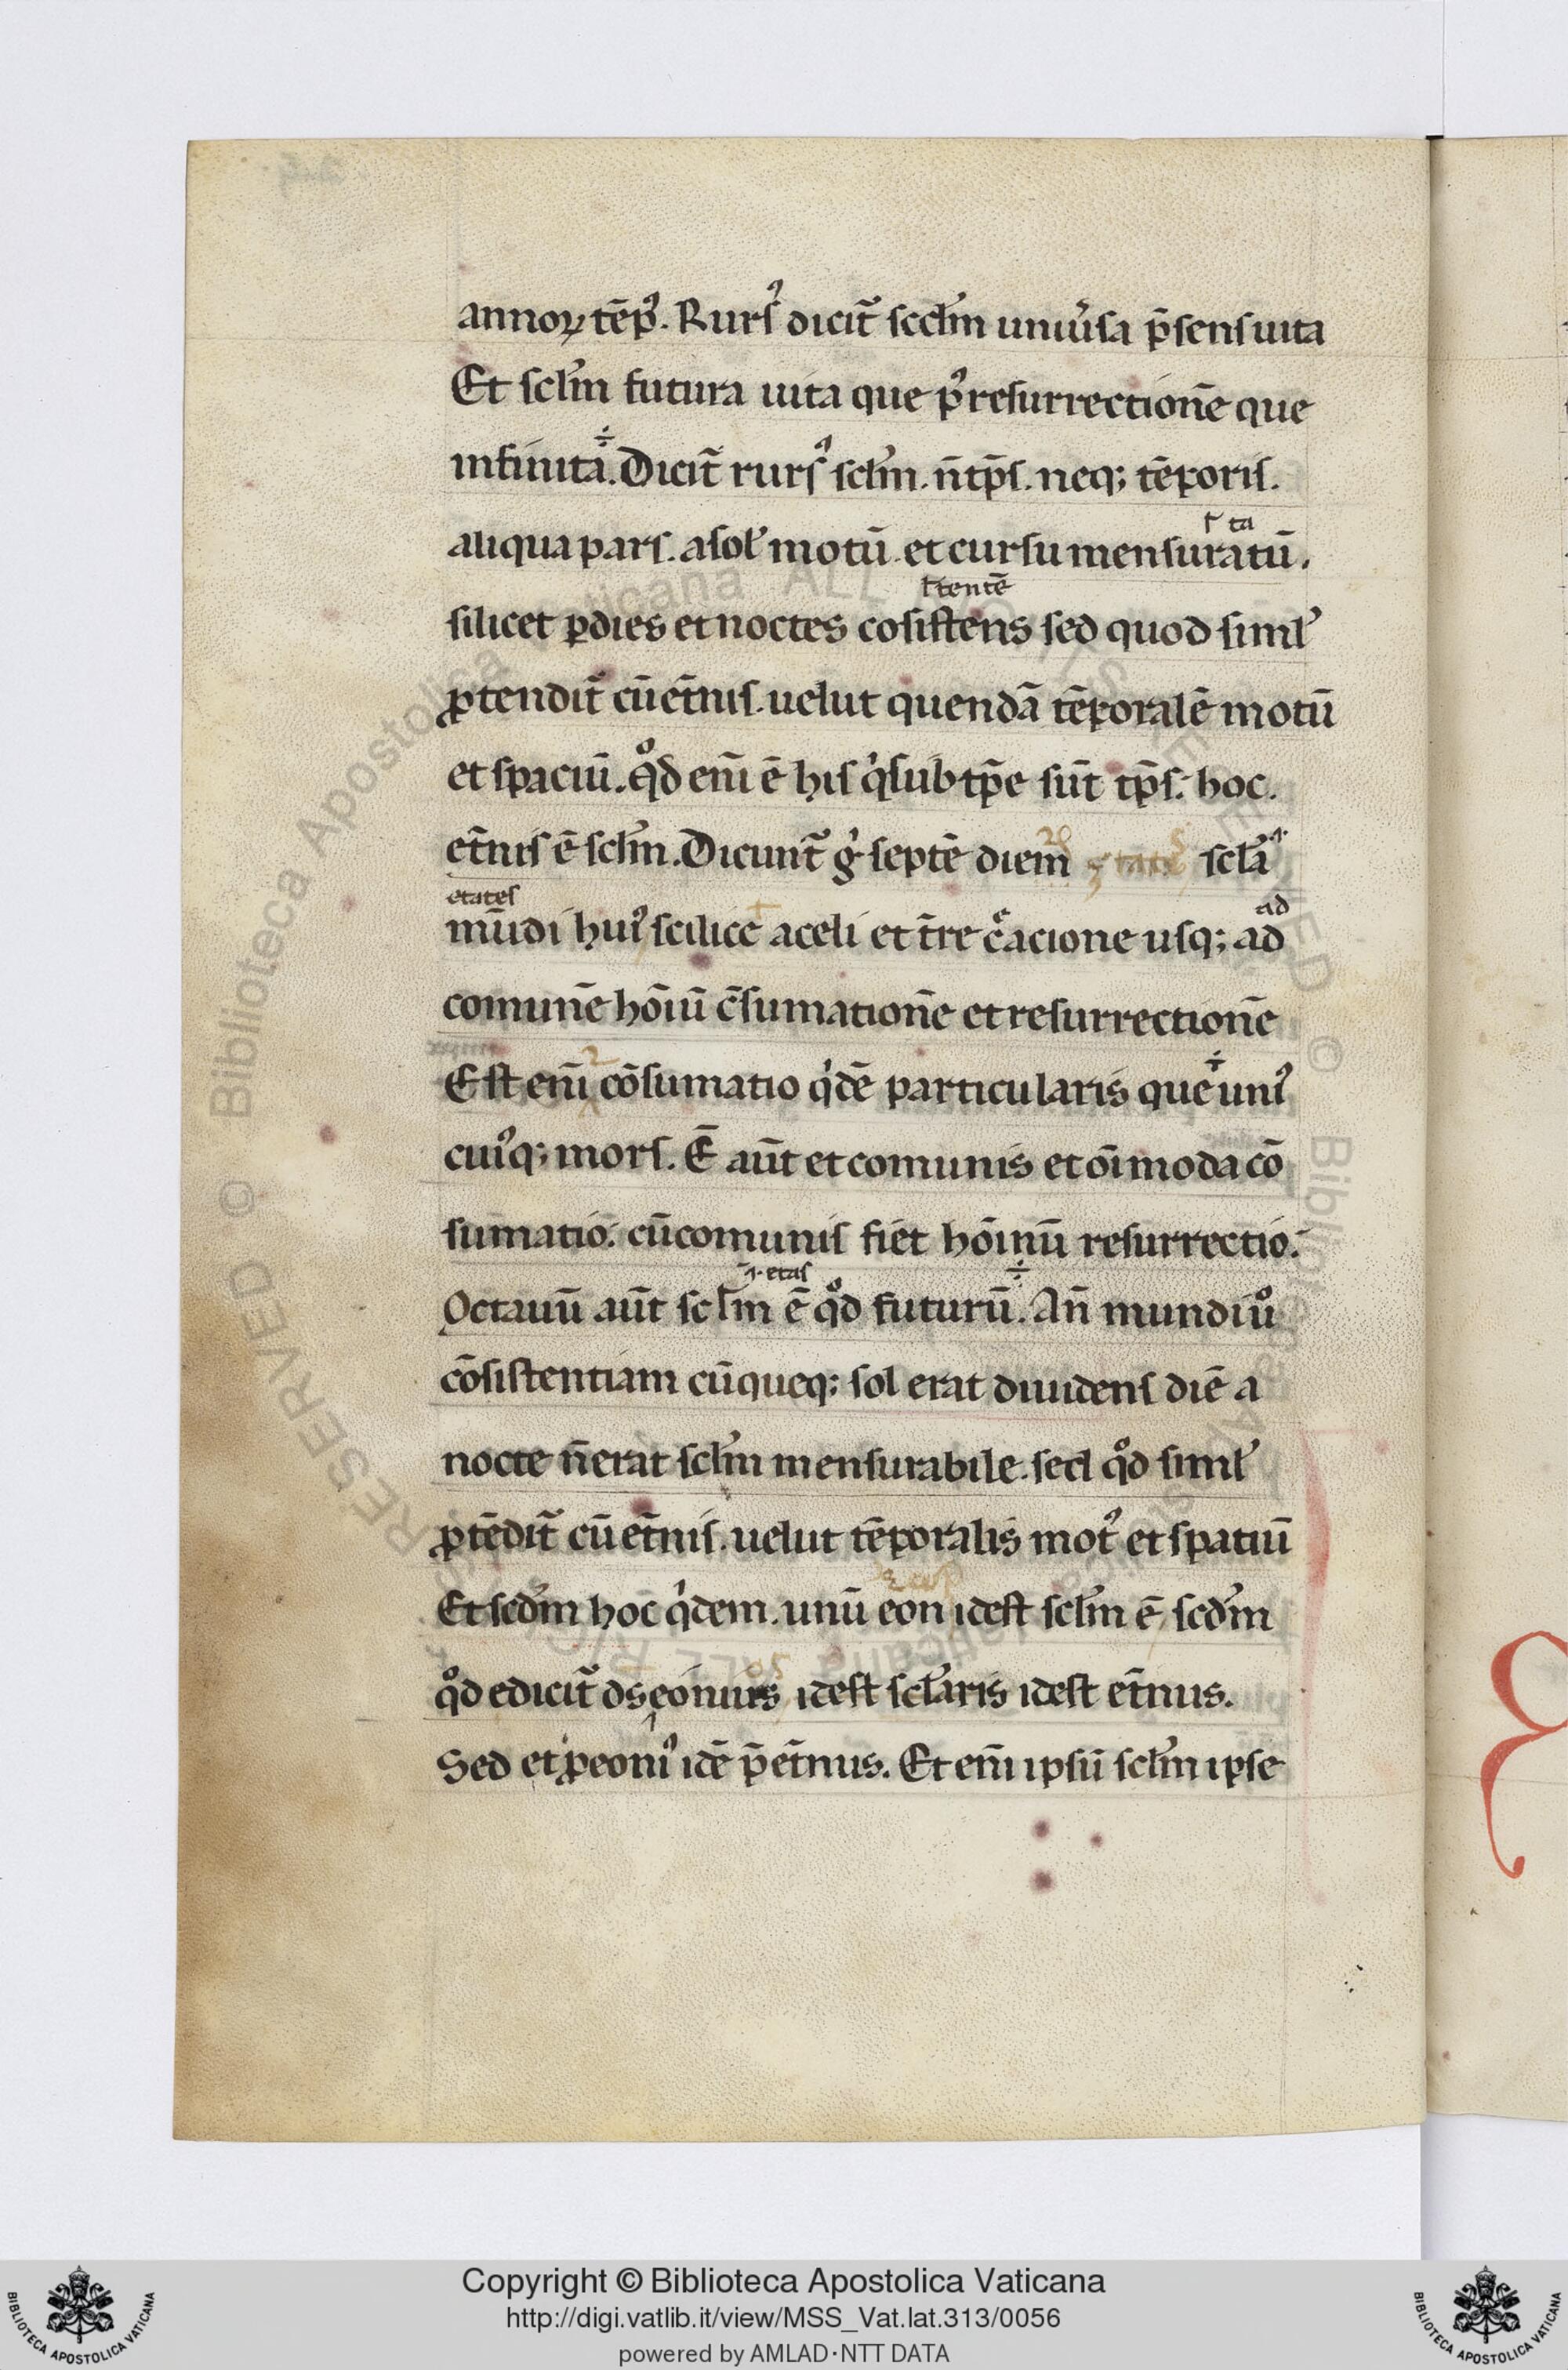 annoꝝ tēp᷒. Rurs᷒ dicit᷑ scclm̄ uniu̾sa p̄sens uita
Et sclm̄ futura uita que p᷒ resurrectionē que
infinita ÷. Dicit᷑ rurs᷒ sclm̄. n̄ tp̄s. neq; tēporis.
aliqua pars. a sol̾ motū et cursu mensuratū.
ł ta
silicet ꝑ dies et noctes cosistens sed quod siml̾
ł tentē
ꝓtendit᷑ cū et̄nis. uelut quendā tēporalē motū
et spaciū. qͦd eni̅ ē his qⁱ sub tp̄e sūt tp̄s. hoc.
et̄nis ē sclm̄. Dicunt᷑ gͥ septē diem scl̾a
etates
mūdi hui᷒ scilicet a celi et t̄re c̾acione usq; ad
ad
comunē hōiū c̄sumationē et resurrectionē
Est eni̅ cōsumatio qⁱdē particularis que ÷ uni᷒
cui᷒q; mors. Ē aūt et comunis et oi̅moda cō
sumatio. cū comunis fiet hōinū resurrectio.
·i· etas
Octauū aūt sclm̄ ē qͦd futurū ÷. An̄ mundi uͦ
cōsistentiam cūqueq; sol erat diuidens diē a
nocte n̄ erat sclm̄ mensurabile. sed qͦd siml̾
ꝓtēdit᷑ cū et̄nis. uelut tēporalis mot᷒ et spatiū
Et scdm̄ hoc qⁱdem. unū eon idest sclm̄ ē scdm̄
qͦd edicit᷑ ds eonius idest scl̾aris idest et̄nus.
Sed et ꝓeoni᷒ idē p̄et̄nus. Et eni̅ ipsū sclm̄ ipse
Copyright © Biblioteca Apostolica Vaticana
http://digi.vatlib.it/view/MSS_Vat.lat.313/0056
powered by AMLAD·NTT DATA